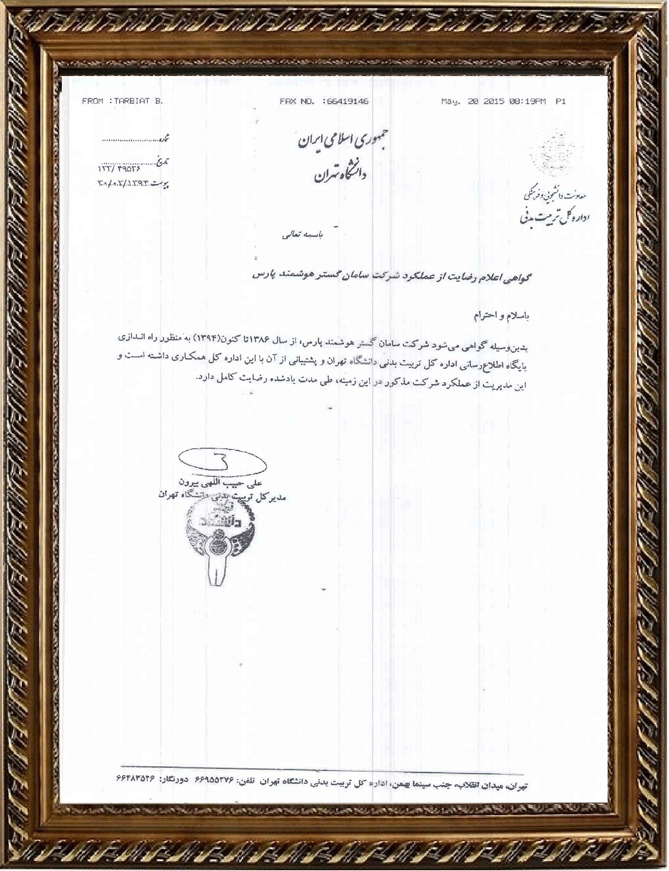 FROM :TARBIAT B.
FAX NO. :66419146
May. 20 2015 08:19PM P1
جمهوری اسلامی ایران
دانشگاه تهران
شماره
تاریخ
۱۲۲/ ۴۹۵۲۶
پیوست
معاونت دانشجویی و فرهنگی
اداره کل تربیت بدنی
باسمه تعالی
گواهی اعلام رضایت از عملکرد شرکت سامان گستر هوشمند پارس
باسلام و احترام
بدین‌وسیله گواهی می‌شود شرکت سامان گستر هوشمند پارس، از سال ۱۳۸۶ تا کنون(۱۳۹۴) به منظور راه اندازی
پایگاه اطلاع‌رسانی اداره کل تربیت بدنی دانشگاه تهران و پشتیبانی از آن با این اداره کل همکاری داشته است و
این مدیریت از عملکرد شرکت مذکور در این زمینه، طی مدت یادشده رضایت کامل دارد.
علی حبیب اللهی بیرون
مدیر کل تربیت بدنی دانشگاه تهران
تهران، میدان انقلاب، جنب سینما بهمن، اداره کل تربیت بدنی دانشگاه تهران تلفن: ۶۶۹۵۵۲۷۶ دورنگار: ۶۶۴۸۳۵۲۶